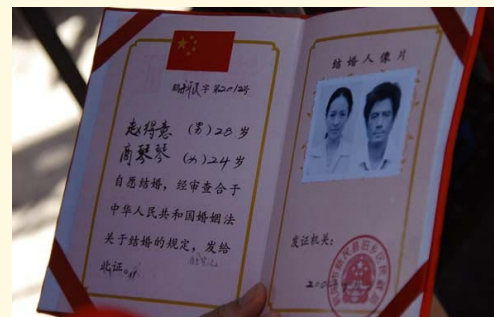 字第2012号
赵得意 (男)28岁
商琴琴 (女)24岁
自愿结婚，经审查合于
中华人民共和国婚姻法
关于结婚的规定，发给
此证。
结婚人像片
发证机关：